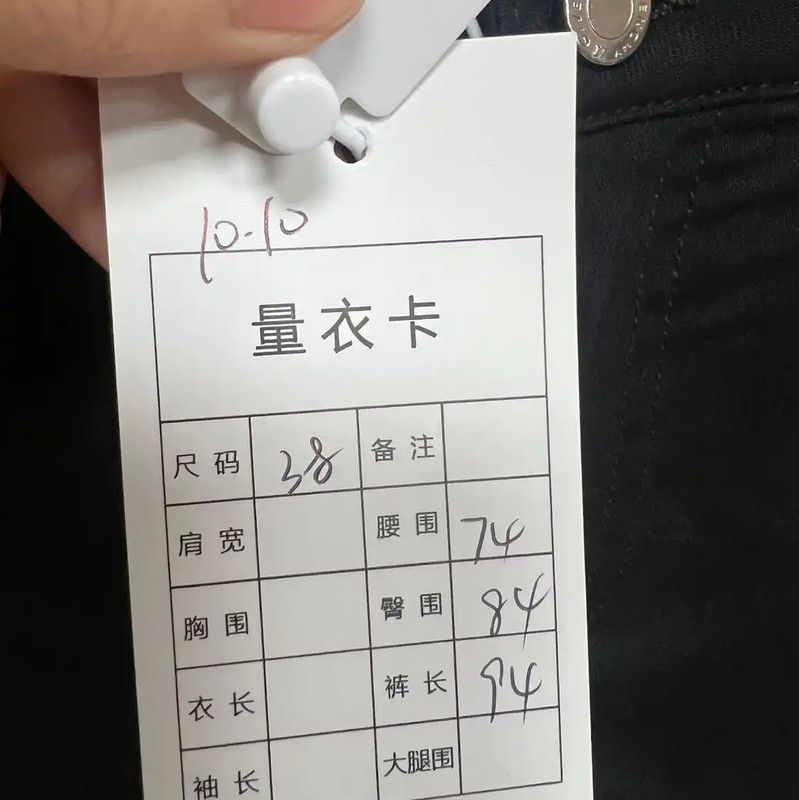 10-10
量衣卡
尺码 38 备注
肩宽 腰围 74
胸围 臀围 84
衣长 裤长 94
袖长 大腿围